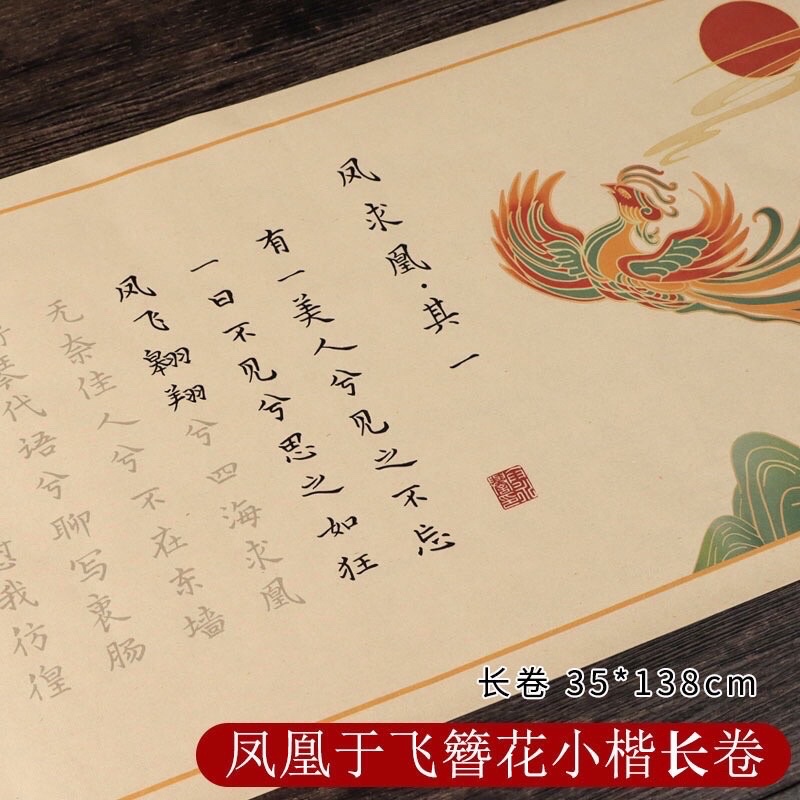 凤求凰·其一
有一美人兮见之不忘
一日不见兮思之如狂
凤飞翱翔兮四海求凰
无奈佳人兮不在东墙
琴代语兮聊写衷肠
我彷徨
长卷 35*138cm
凤凰于飞簪花小楷长卷